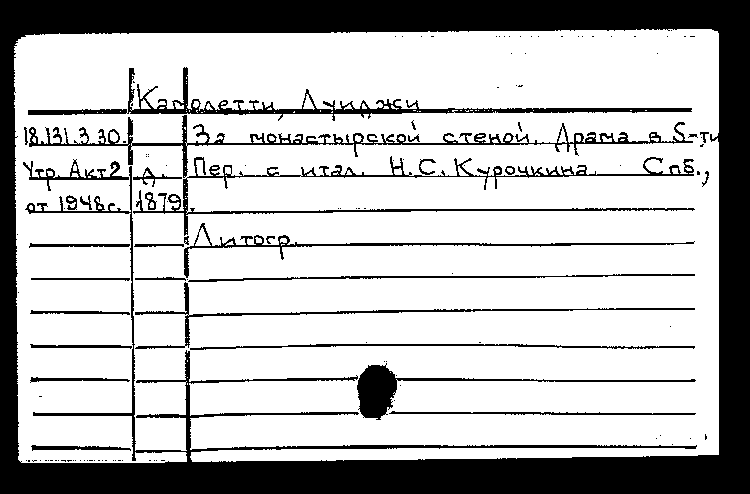 Камолетти, Луиджи
18.131.3.30. За монастырской стеной. Драма в 5-ти
Утр. Акт2 д. Пер. с итал. Н.С. Курочкина. Спб.,
от 1948г. 1879.
Литогр.